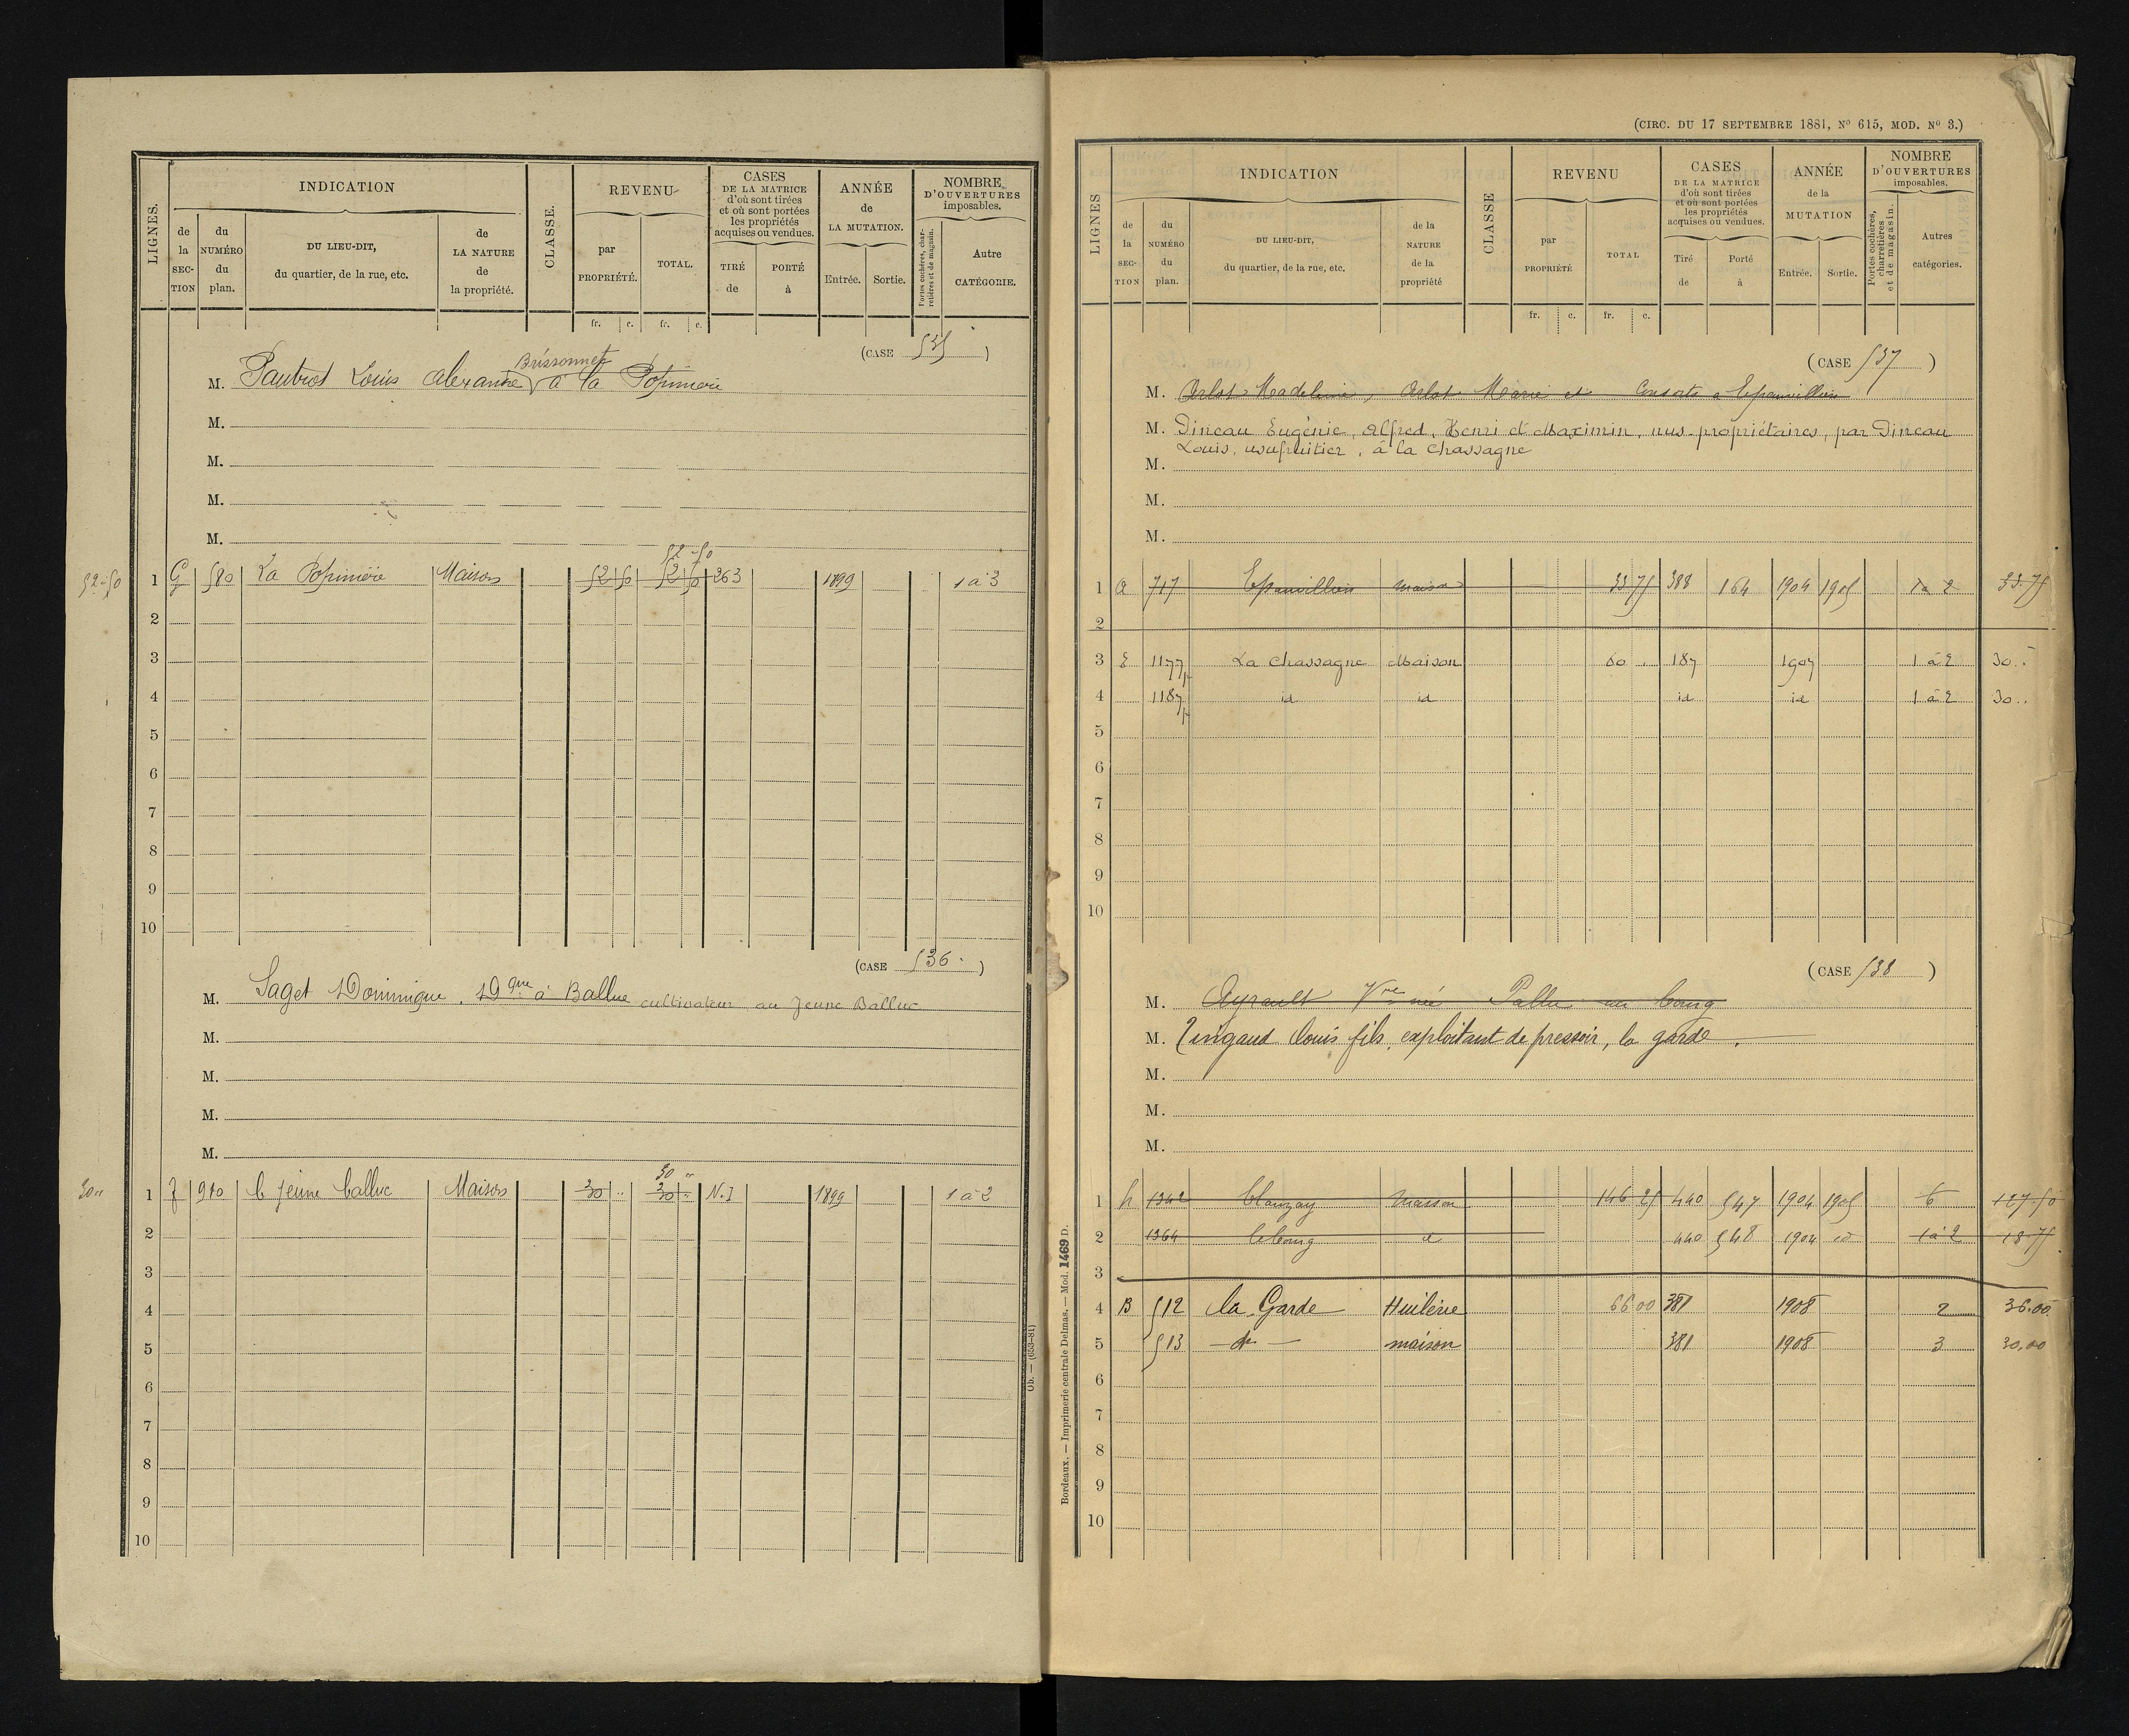 INDICATION
REVENU
CASES
DE LA MATRICE
d'où sont tirées
et où sont portées
les propriétés
acquises ou vendues.
ANNÉE
de
LA MUTATION.
NOMBRE
D'OUVERTURES
imposables.
LIGNES.
de la SECTION
du NUMÉRO du plan.
DU LIEU-DIT,
du quartier, de la rue, etc.
de LA NATURE de la propriété.
CLASSE.
par PROPRIÉTÉ.
TOTAL.
TIRÉ de
PORTÉ à
Entrée.
Sortie.
Portes cochères, charretières et de magasin.
Autre CATÉGORIE.
fr. c. fr. c.
(CASE 535 )
Brissonnet
M. Pautrot Louis Alexandre à la Popinière
M.
M.
M.
M.
52-50
52-50 1 G 580 La Popinière Maison 52 50 52 50 263 1899 1 à 3
2
3
4
5
6
7
8
9
10
(CASE 536. )
M. Saget Dominique, Dque à Balluc cultivateur au Jeune Balluc
M.
M.
M.
M.
30 "
30 " 1 F 910 le jeune balluc Maison 30 " 30 " N.I 1899 1 à 2
2
3
4
5
6
7
8
9
10
Ob. — (653-81)
(CIRC. DU 17 SEPTEMBRE 1881, No 615, MOD. No 3.)
INDICATION
REVENU
CASES
DE LA MATRICE
d'où sont tirées
et où sont portées
les propriétés
acquises ou vendues.
ANNÉE
de la
MUTATION
NOMBRE
D'OUVERTURES
imposables.
LIGNES
de la SECTION
du NUMÉRO du plan.
DU LIEU-DIT,
du quartier, de la rue, etc.
de la NATURE de la propriété
CLASSE
par PROPRIÉTÉ
TOTAL
Tiré de
Porté à
Entrée.
Sortie.
Portes cochères, charretières, et de magasin.
Autres catégories.
fr. c. fr. c.
(CASE 537 )
M. Arlot Madeleine, Arlot Marie et Consorts à Epanvilliers
M. Dineau Eugénie, Alfred, Henri et Maximin, nus-propriétaires, par Dineau
Louis, usufruitier, à la Chassagne
M.
M.
M.
1 A 717 Epanvilliers maison 33 75 388 164 1904 1905 1 à 2 33.75
2
3 E 1177p La Chassagne Maison 60 . 187 1907 1 à 2 30..
4 1187p id id id id 1 à 2 30..
5
6
7
8
9
10
(CASE 538 )
M. Ayrault Vve née Pallu au bourg
M. Tingaud Louis fils, exploitant de pressoir, la garde.
M.
M.
M.
1 h 1342 blanzay maison 146 25 440 547 1904 1905 6 127.50
2 1364 le bourg d 440 548 1904 id 1 à 2 18.75
3
4 B 512 la Garde Huilerie 66 00 381 1908 2 36.00
5 513 — do — maison 381 1908 3 30.00
6
7
8
9
10
Bordeaux. — Imprimerie centrale Delmas. — Mod. 1469 D.